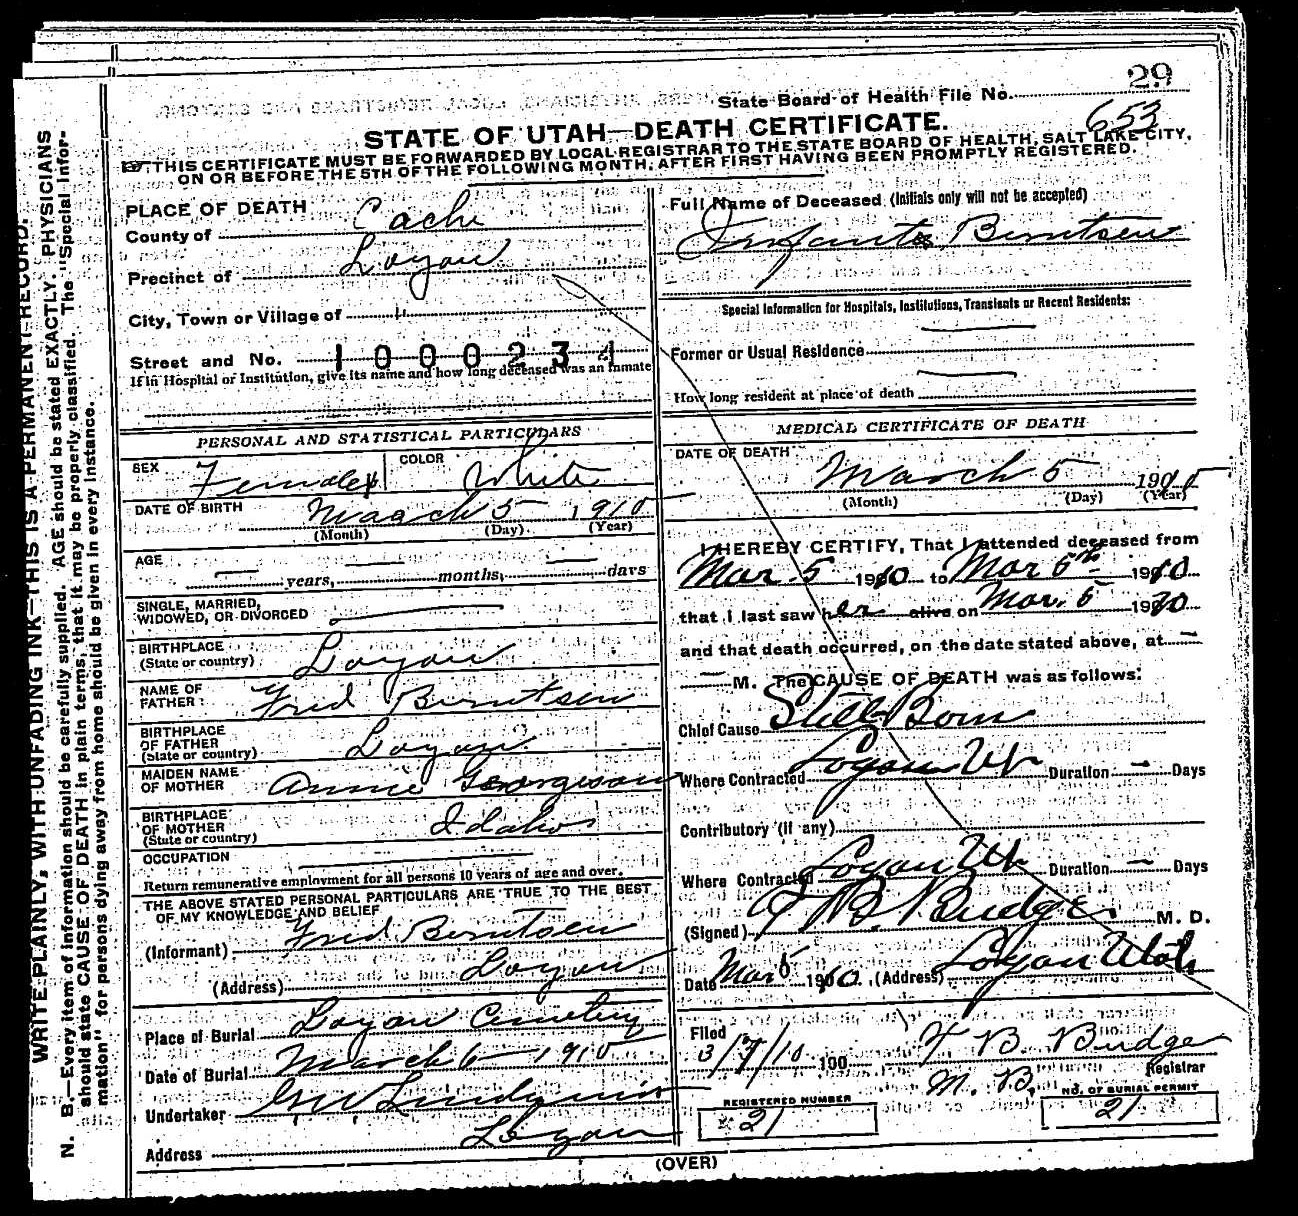 29
State Board of Health File No.
653
STATE OF UTAH—DEATH CERTIFICATE.
THIS CERTIFICATE MUST BE FORWARDED BY LOCAL REGISTRAR TO THE STATE BOARD OF HEALTH, SALT LAKE CITY,
ON OR BEFORE THE 5TH OF THE FOLLOWING MONTH, AFTER FIRST HAVING BEEN PROMPTLY REGISTERED.
WRITE PLAINLY, WITH UNFADING INK—THIS IS A PERMANENT RECORD.
N. B.—Every item of information should be carefully supplied. AGE should be stated EXACTLY. PHYSICIANS
should state CAUSE OF DEATH in plain terms, that it may be properly classified. The "Special Infor-
mation" for persons dying away from home should be given in every instance.
PLACE OF DEATH
County of Cache
Precinct of Logan
City, Town or Village of "
Street and No.
1000234
If in Hospital or Institution, give its name and how long deceased was an inmate
PERSONAL AND STATISTICAL PARTICULARS
SEX Female COLOR White
DATE OF BIRTH March 5 1910
(Month) (Day) (Year)
AGE
— years, — months, — days
SINGLE, MARRIED,
WIDOWED, OR DIVORCED —
BIRTHPLACE
(State or country) Logan
NAME OF
FATHER Fred Berntsen
BIRTHPLACE
OF FATHER
(State or country) Logan
MAIDEN NAME
OF MOTHER Annie Georgeson
BIRTHPLACE
OF MOTHER
(State or country) Idaho
OCCUPATION —
Return remunerative employment for all persons 10 years of age and over.
THE ABOVE STATED PERSONAL PARTICULARS ARE TRUE TO THE BEST
OF MY KNOWLEDGE AND BELIEF
(Informant) Fred Berntsen
(Address) Logan
Place of Burial Logan Cemetery
Date of Burial March 6 1910
Undertaker
Address Logan
Full Name of Deceased (Initials only will not be accepted)
Berntsen
Special Information for Hospitals, Institutions, Transients or Recent Residents:
Former or Usual Residence —
How long resident at place of death —
MEDICAL CERTIFICATE OF DEATH
DATE OF DEATH
March 5 1910
(Month) (Day) (Year)
I HEREBY CERTIFY, That I attended deceased from
Mar. 5 1910 to Mar 5th 1910
that I last saw her alive on Mar. 5 1910
and that death occurred, on the date stated above, at —
— M. The CAUSE OF DEATH was as follows:
Chief Cause Still Born
Where Contracted Logan Ut Duration — Days
Contributory (if any)
Where Contracted Logan Ut Duration — Days
(Signed) T B. Budge M. D.
Date Mar 5 1910. (Address) Logan Utah
Filed
3/7/10 190 T B Budge
Registrar
M. B.
REGISTERED NUMBER
21
NO. OF BURIAL PERMIT
21
(OVER)